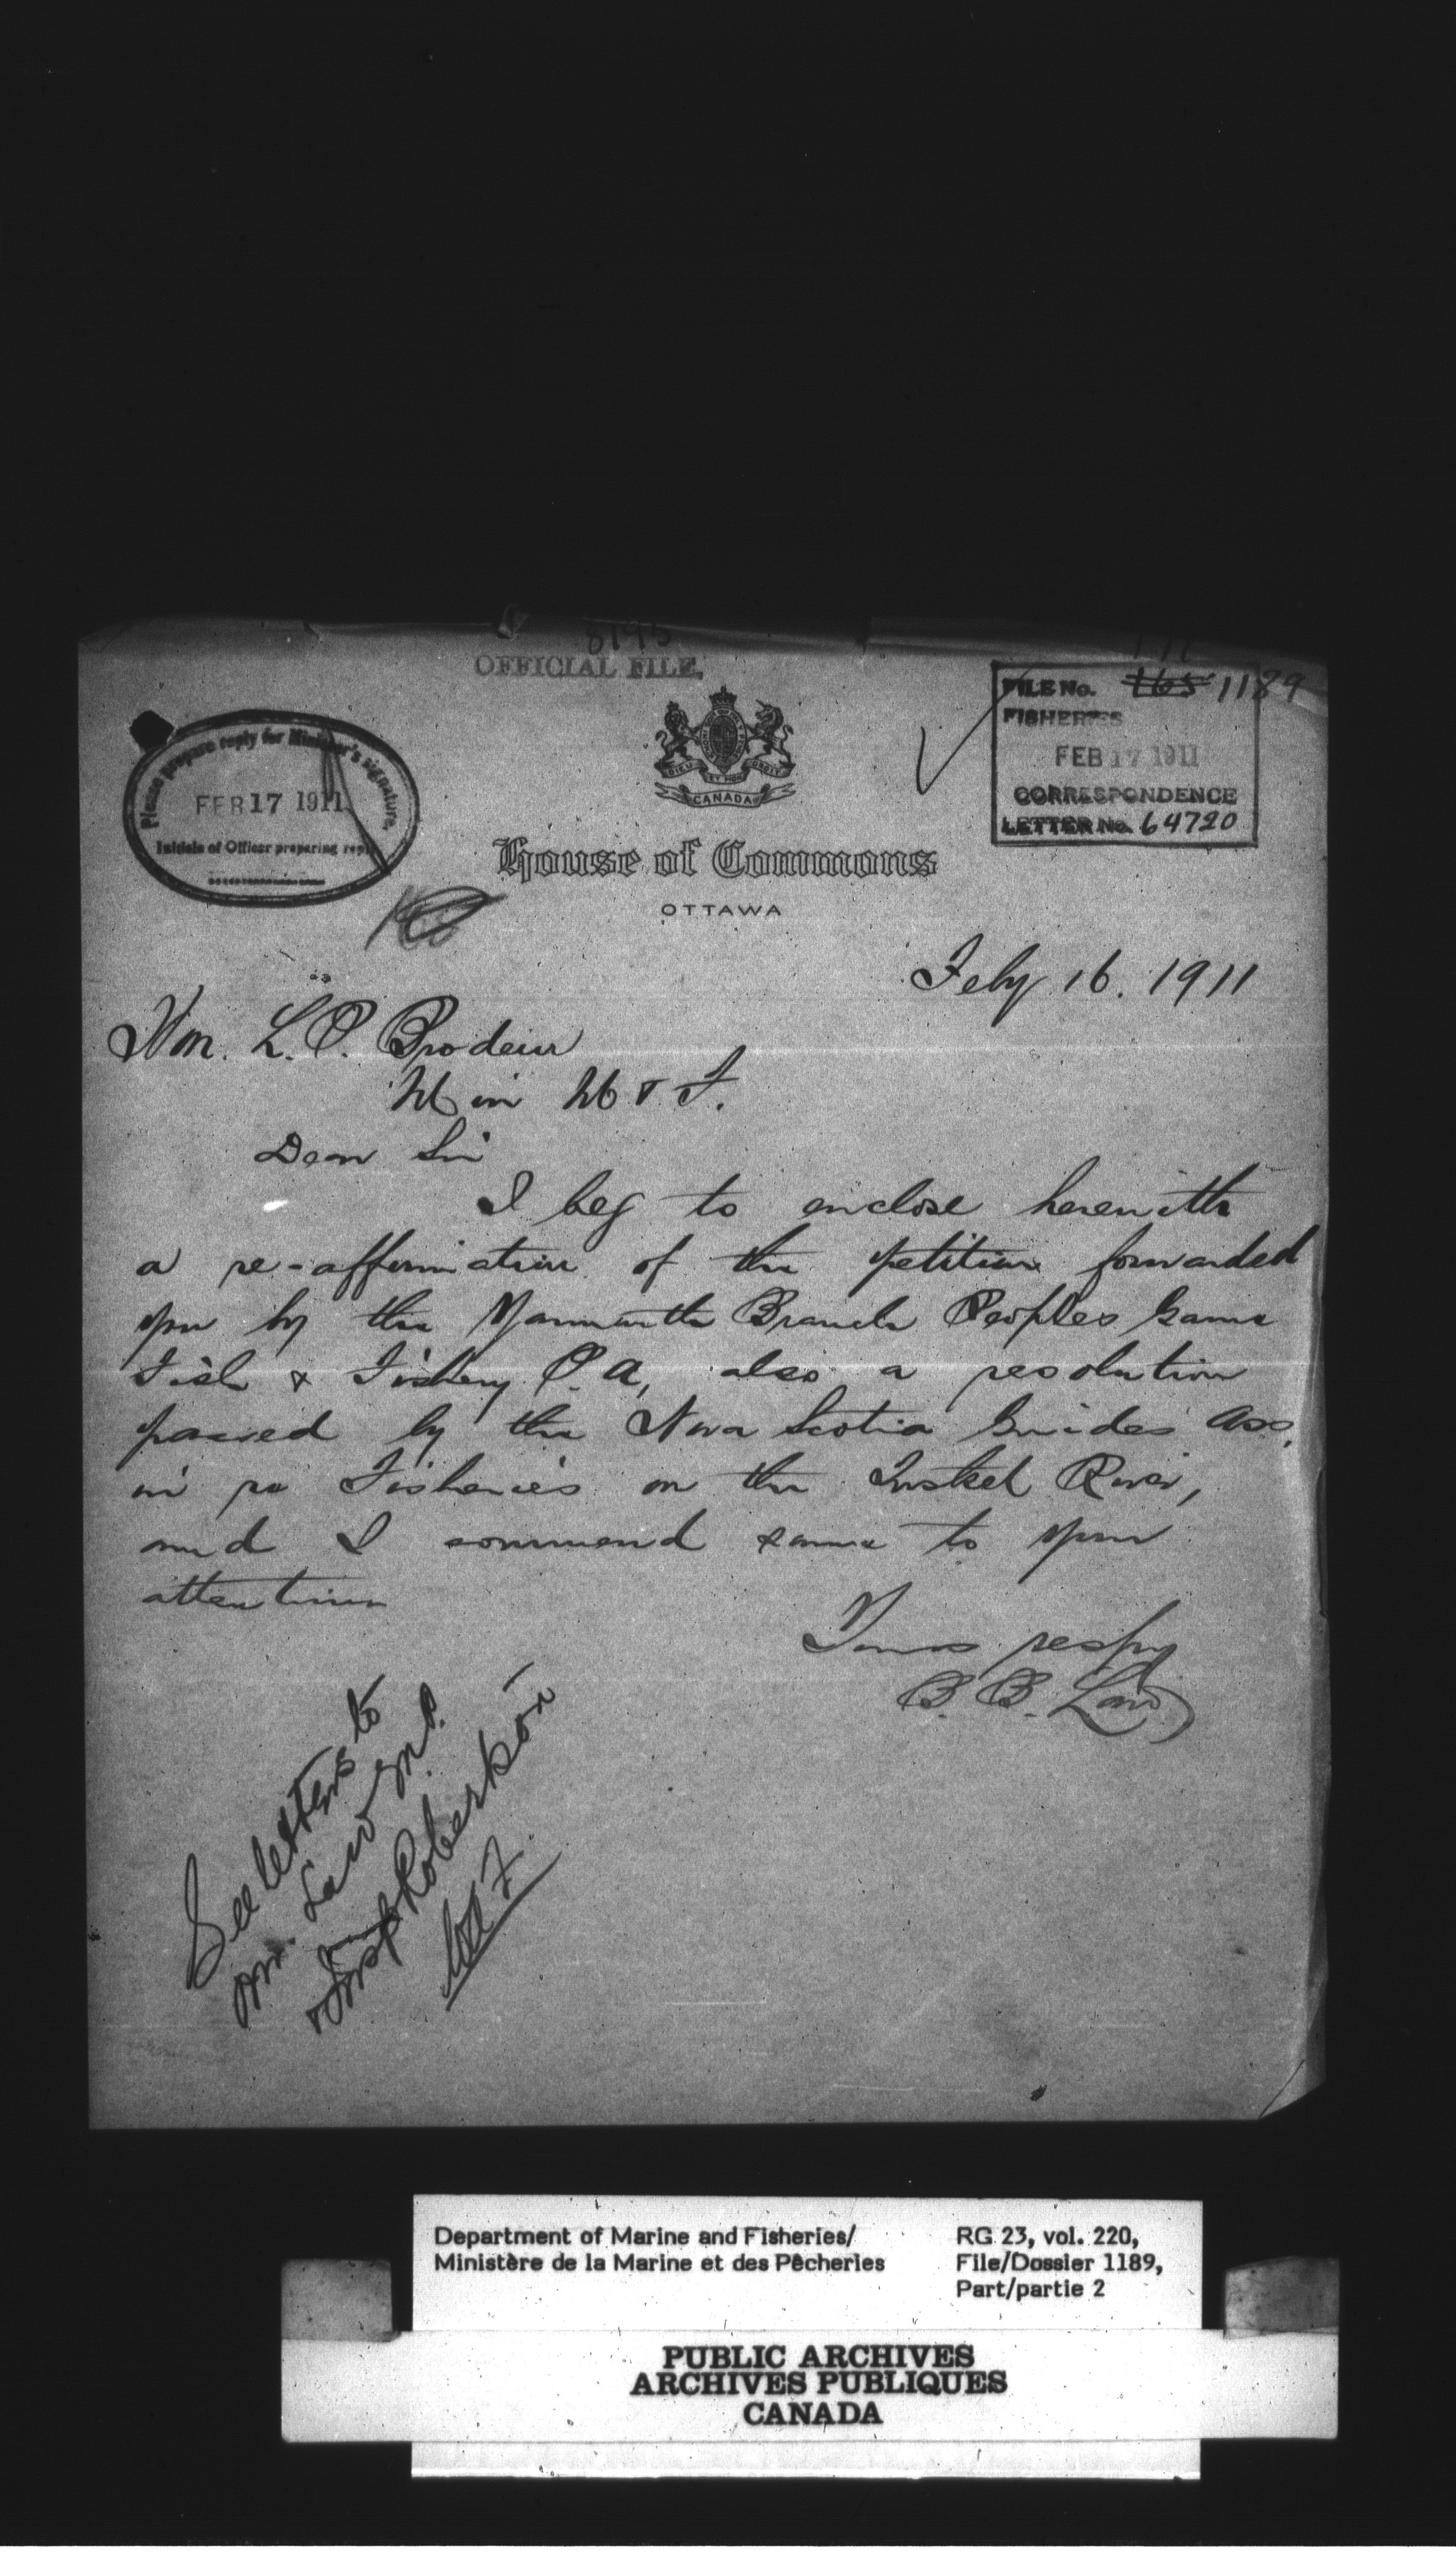 8195
OFFICIAL FILE.
FILE No. 165 1189
FISHERIES
FEB 17 1911
CORRESPONDENCE
LETTER No. 64720
Please prepare reply for Minister's signature.
FEB 17 1911
Initials of Officer preparing reply
DIEU ET MON DROIT
CANADA
House of Commons
OTTAWA
Feby 16. 1911
Hon. L. P. Brodeur
Min M & F.
Dear Sir
I beg to enclose herewith
a re-affirmation of the petition forwarded
you by the Yarmouth Branch Peoples Game
Fish & Fishery P. A, also a resolution
passed by the Nova Scotia Guides Ass,
in re Fisheries on the Tusket River,
and I commend same to your
attention
Yours respy
B. B. Law
See letters to
Mr. Law M.P.
& Insp Robertson
Department of Marine and Fisheries/
Ministère de la Marine et des Pêcheries
RG 23, vol. 220,
File/Dossier 1189,
Part/partie 2
PUBLIC ARCHIVES
ARCHIVES PUBLIQUES
CANADA